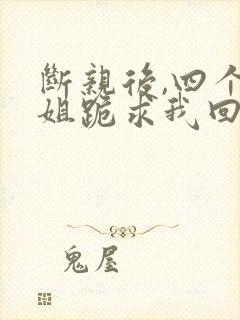 斷親後,四个
姐跪求我回
鬼屋